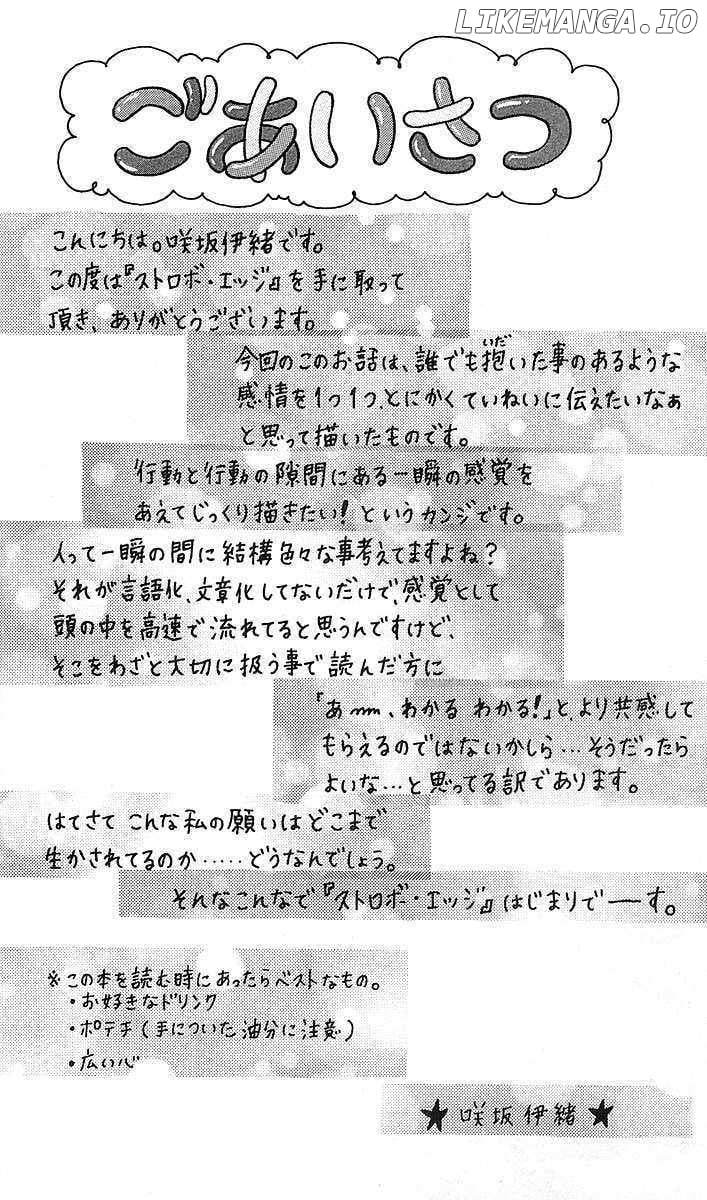 LIKEMANGA.IO
ごあいさつ
こんにちは。咲坂伊緒です。
この度は『ストロボ・エッジ』を手に取って
頂き、ありがとうございます。
今回のこのお話は、誰でも抱いた事のあるような
感情を1つ1つ、とにかくていねいに伝えたいなぁ
と思って描いたものです。
行動と行動の隙間にある一瞬の感覚を
あえてじっくり描きたい!というカンジです。
人って一瞬の間に結構色々な事考えてますよね?
それが言語化、文章化してないだけで、感覚として
頭の中を高速で流れてると思うんですけど、
そこをわざと大切に扱う事で読んだ方に
「あーーー、わかるわかる!」と、より共感して
もらえるのではないかしら…そうだったら
よいな…と思ってる訳であります。
はてさて こんな私の願いはどこまで
生かされてるのか……どうなんでしょう。
そんなこんなで『ストロボ・エッジ』はじまりでーす。
※この本を読む時にあったらベストなもの。
・お好きなドリンク
・ポテチ(手についた油分に注意)
・広い心
★咲坂伊緒★